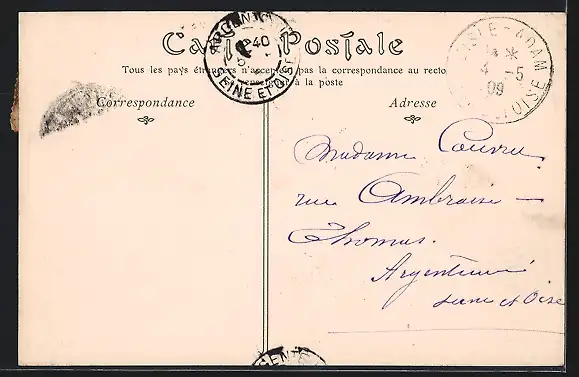 Carte Postale
Tous les pays étrangers n'acceptent pas la correspondance au recto
renseigner à la poste
Correspondance
Adresse
ARGENTEUIL
40
5
SEINE ET OISE
ISLE-ADAM
*
4 -5
09
OISE
Madame Couvreu
rue Ambroise -
Thomas.
Argenteuil
Seine et Oise
GENT